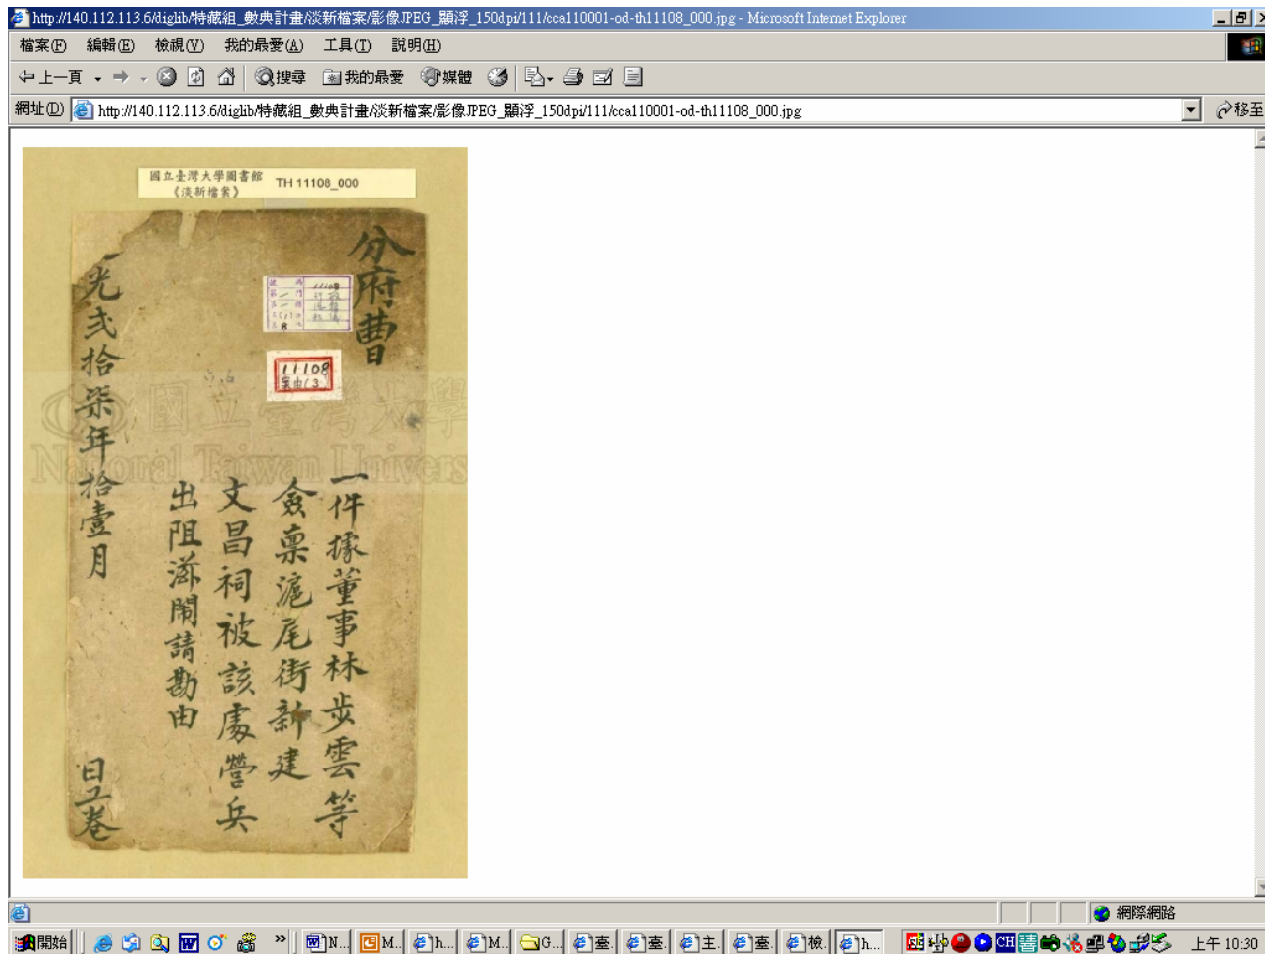 http://140.112.113.6/diglib/特藏組_數典計畫/淡新檔案/影像JPEG_顯浮_150dpi/111/cca110001-od-th11108_000.jpg - Microsoft Internet Explorer
檔案(F) 編輯(E) 檢視(V) 我的最愛(A) 工具(T) 說明(H)
上一頁 搜尋 我的最愛 媒體
網址(D) http://140.112.113.6/diglib/特藏組_數典計畫/淡新檔案/影像JPEG_顯浮_150dpi/111/cca110001-od-th11108_000.jpg 移至
國立臺灣大學圖書館
《淡新檔案》
TH 11108_000
分府曹
11108
案由(3)
國立臺灣大學
National Taiwan Univers
一件據董事林步雲等
僉稟滬尾街新建
文昌祠被該處營兵
出阻滋鬧請勘由
光弍拾柒年拾壹月 日立卷
網際網路
開始 N... M.. h... M.. G... 臺. 臺. 主. 臺. 檢. h... CH 上午 10:30